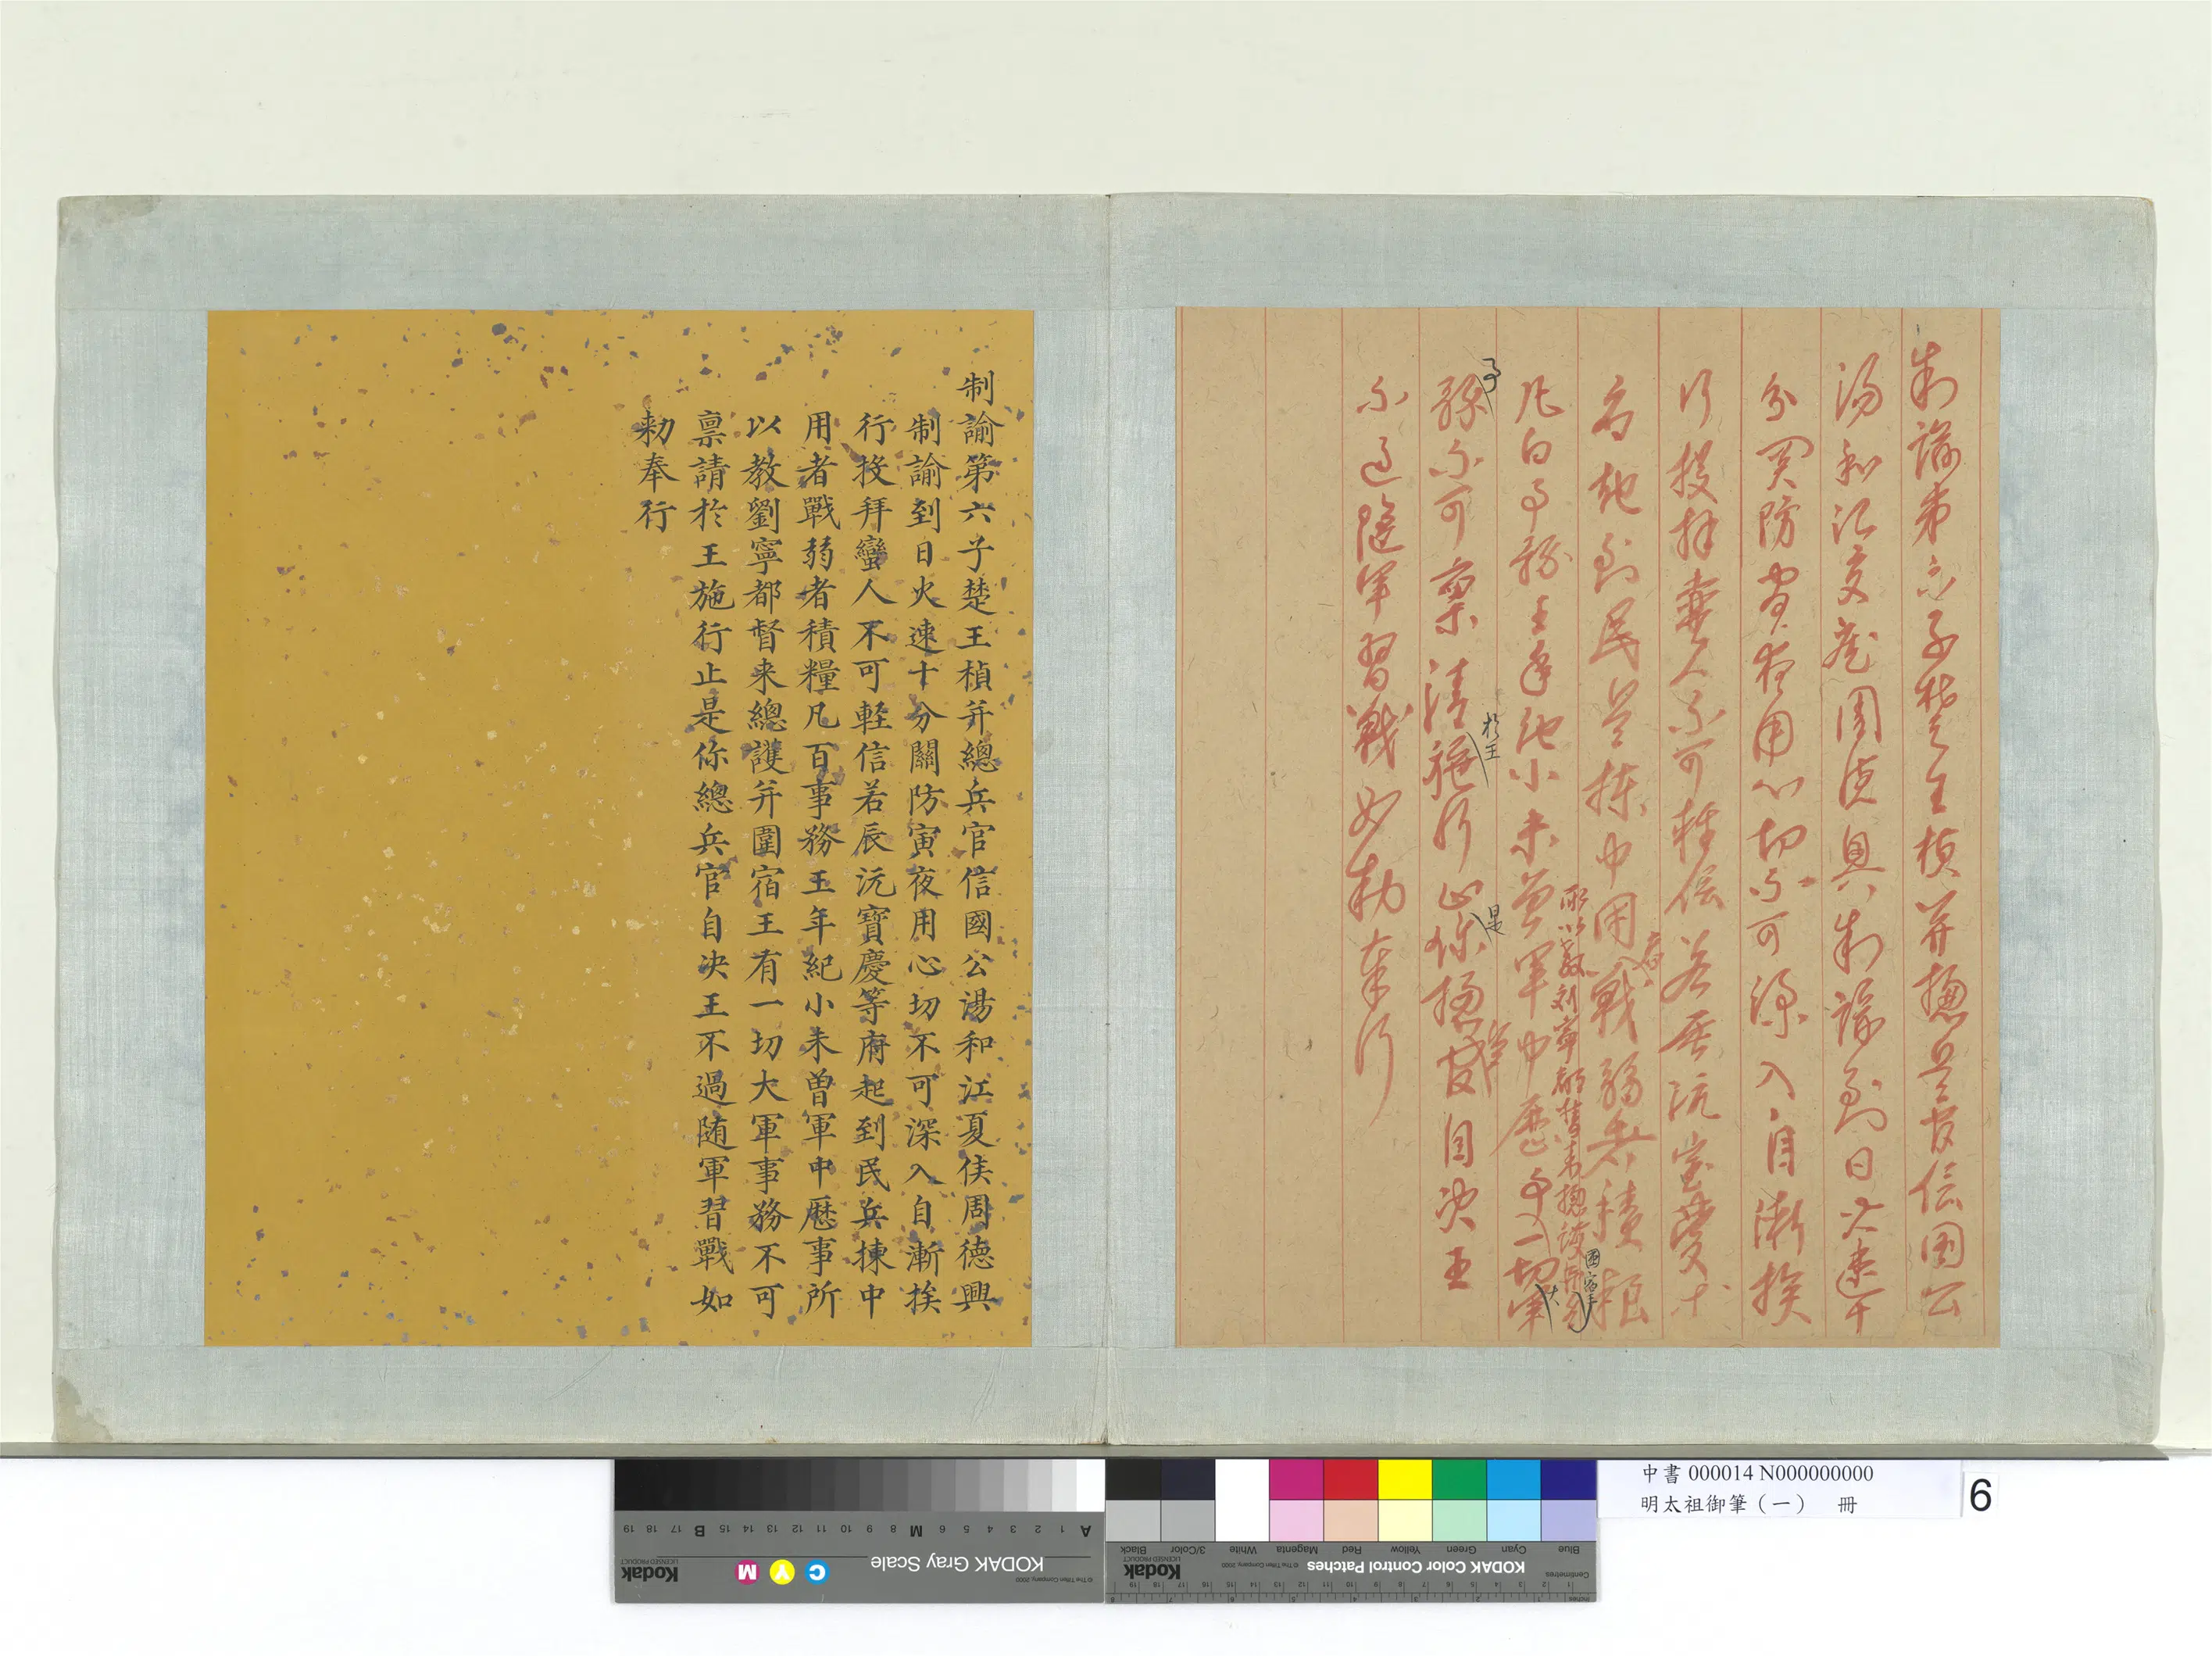 制諭第六子楚王楨并總兵官信國公
湯和江夏侯周德興制諭到日火速十
分關防寅夜用心切不可深入自漸挨
行投拜蠻人不可輕信若辰沅寶慶等
府起到民兵揀中用者戰弱者積粮
所以教刘寧都督来總護并
圍宿王
凡百事務王年紀小未曾軍中歷事一切軍
大
事
務不可稟請施行止你總官自决王
於王
是
兵
不過随軍習戰如勑奉行
制諭第六子楚王楨并總兵官信國公湯和江夏侯周德興
制諭到日火速十分關防寅夜用心切不可深入自漸挨
行投拜蠻人不可軽信若辰沅寶慶等府起到民兵揀中
用者戰弱者積糧凡百事務王年紀小未曾軍中歷事所
以教劉寧都督来總護并圍宿王有一切大軍事務不可
稟請於王施行止是你總兵官自决王不過随軍習戰如
勑奉行
中書 000014 N000000000
明太祖御筆（一） 冊
6
KODAK Gray Scale
Kodak
LICENSED PRODUCT
C Y M
© The Tiffen Company, 2000
A 1 2 3 4 5 6 M 8 9 10 11 12 13 14 15 B 17 18 19
KODAK Color Control Patches
Kodak
LICENSED PRODUCT
© The Tiffen Company, 2000
Blue Cyan Green Yellow Red Magenta White 3/Color Black
Centimetres
Inches